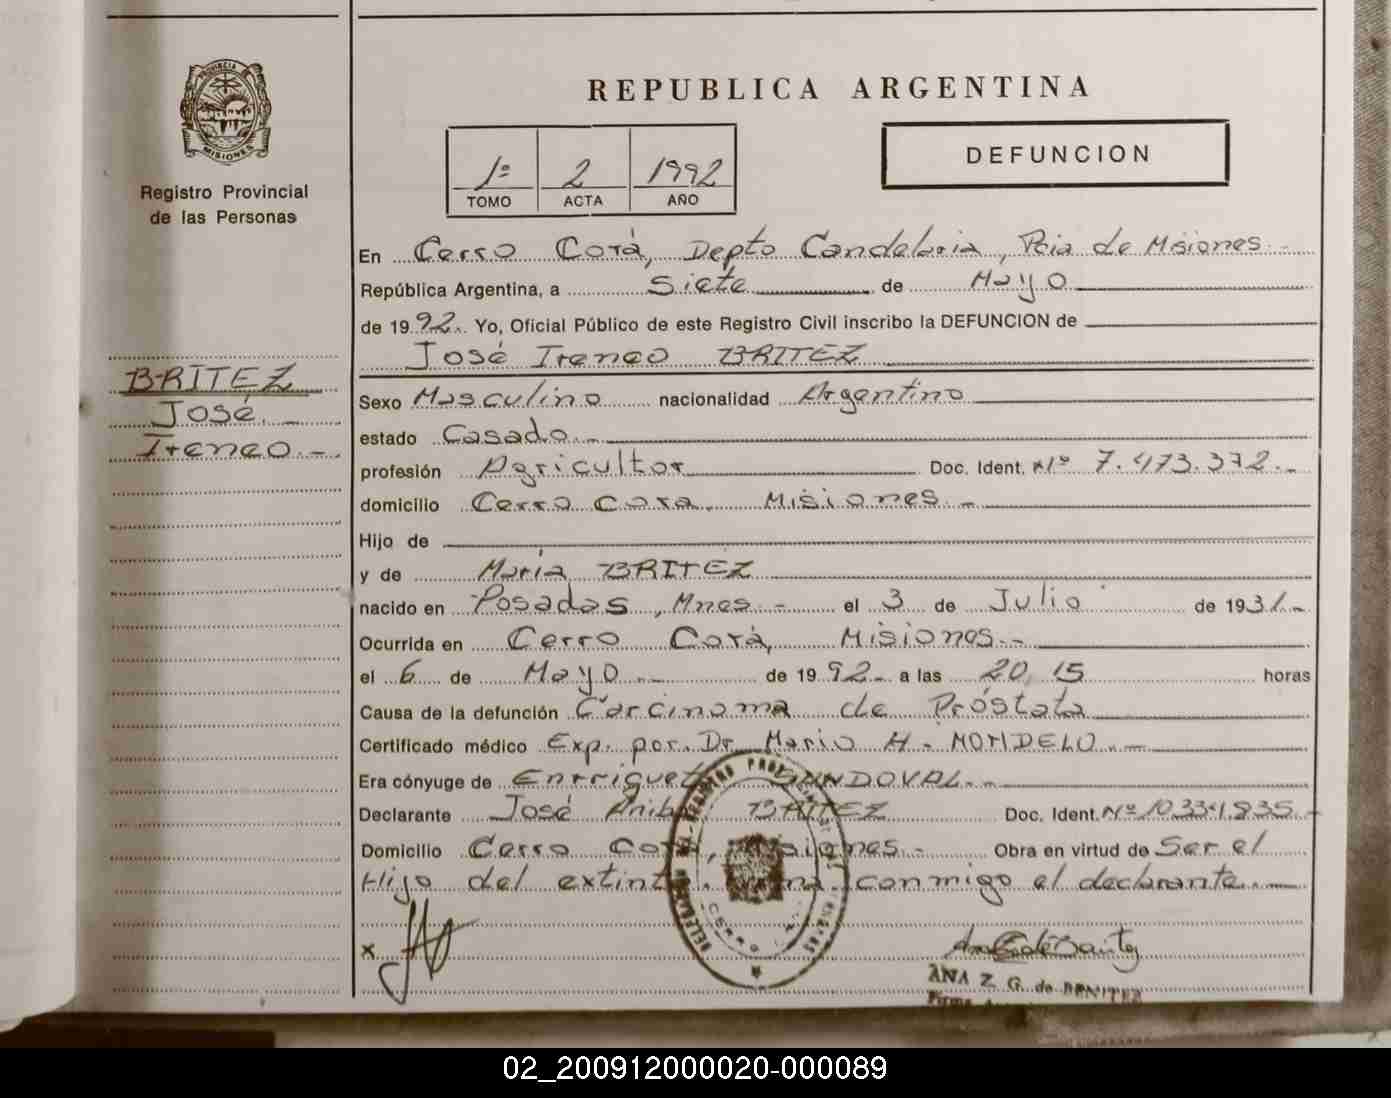 REPUBLICA ARGENTINA
PROVINCIA DE
MISIONES
Registro Provincial
de las Personas
1º 2 1992
TOMO ACTA AÑO
DEFUNCION
En Cerro Corá, Depto Candelaria, Pcia de Misiones.-
República Argentina, a Siete de Mayo
de 1992. Yo, Oficial Público de este Registro Civil inscribo la DEFUNCION de
José Ireneo BRITEZ
BRITEZ
José
Ireneo.-
Sexo Masculino nacionalidad Argentino
estado Casado.-
profesión Agricultor Doc. Ident. Nº 7.473.372.-
domicilio Cerro Cora, Misiones.-
Hijo de
y de María BRITEZ
nacido en Posadas, Mnes.- el 3 de Julio de 1931.-
Ocurrida en Cerro Corá, Misiones.-
el 6 de Mayo.- de 1992.- a las 20,15 horas
Causa de la defunción Carcinoma de Próstata
Certificado médico Exp. por. Dr. Mario H. MOMDELO.-
Era cónyuge de Enrriqueta SANDOVAL.-
Declarante José Anibal BRITEZ Doc. Ident. Nº 10.334.835.-
Domicilio Cerro Corá, Misiones.- Obra en virtud de Ser el
Hijo del extinto. conmigo el declarante.-
x
ANA Z. G. de BENITEZ
Firma
02_200912000020-000089